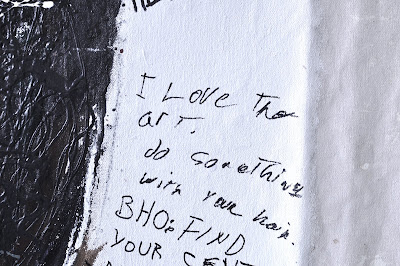 I LOVE The
art.
do something
with your hair.
BHO: FIND
YOUR CENT